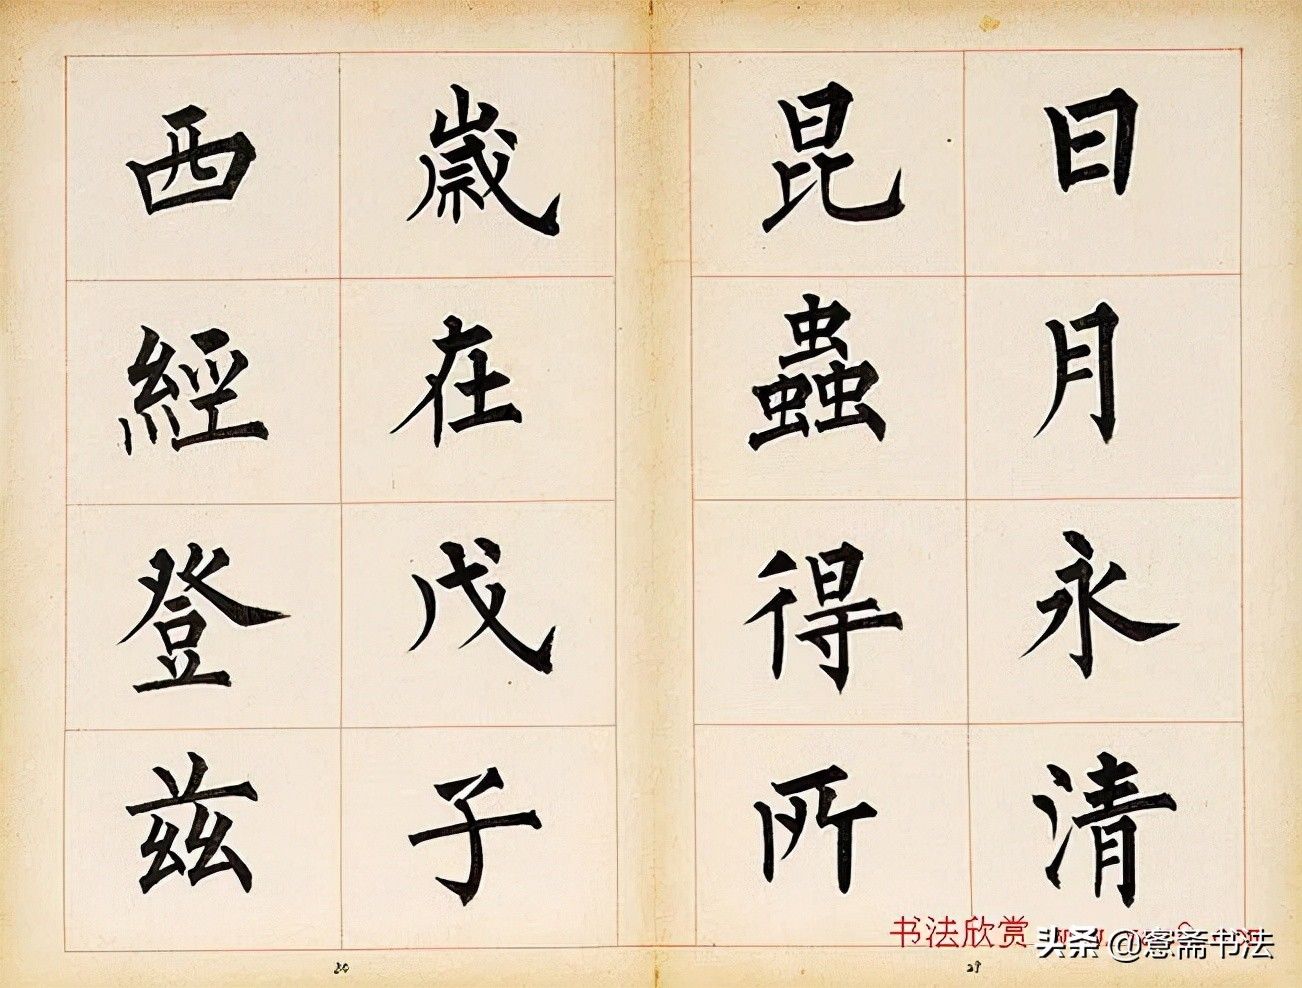 日月永清
昆蟲得所
歲在戊子
西經登兹
29
30
书法欣赏
头条 @愙斋书法